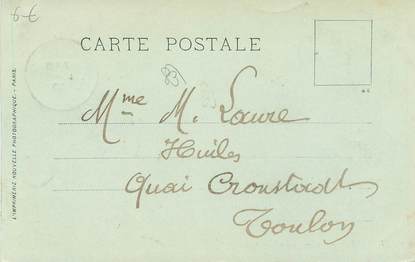 6 €
CARTE POSTALE
83
Mme M. Laure
Huiles
Quai Cronstadt
Toulon
L'IMPRIMERIE NOUVELLE PHOTOGRAPHIQUE - PARIS